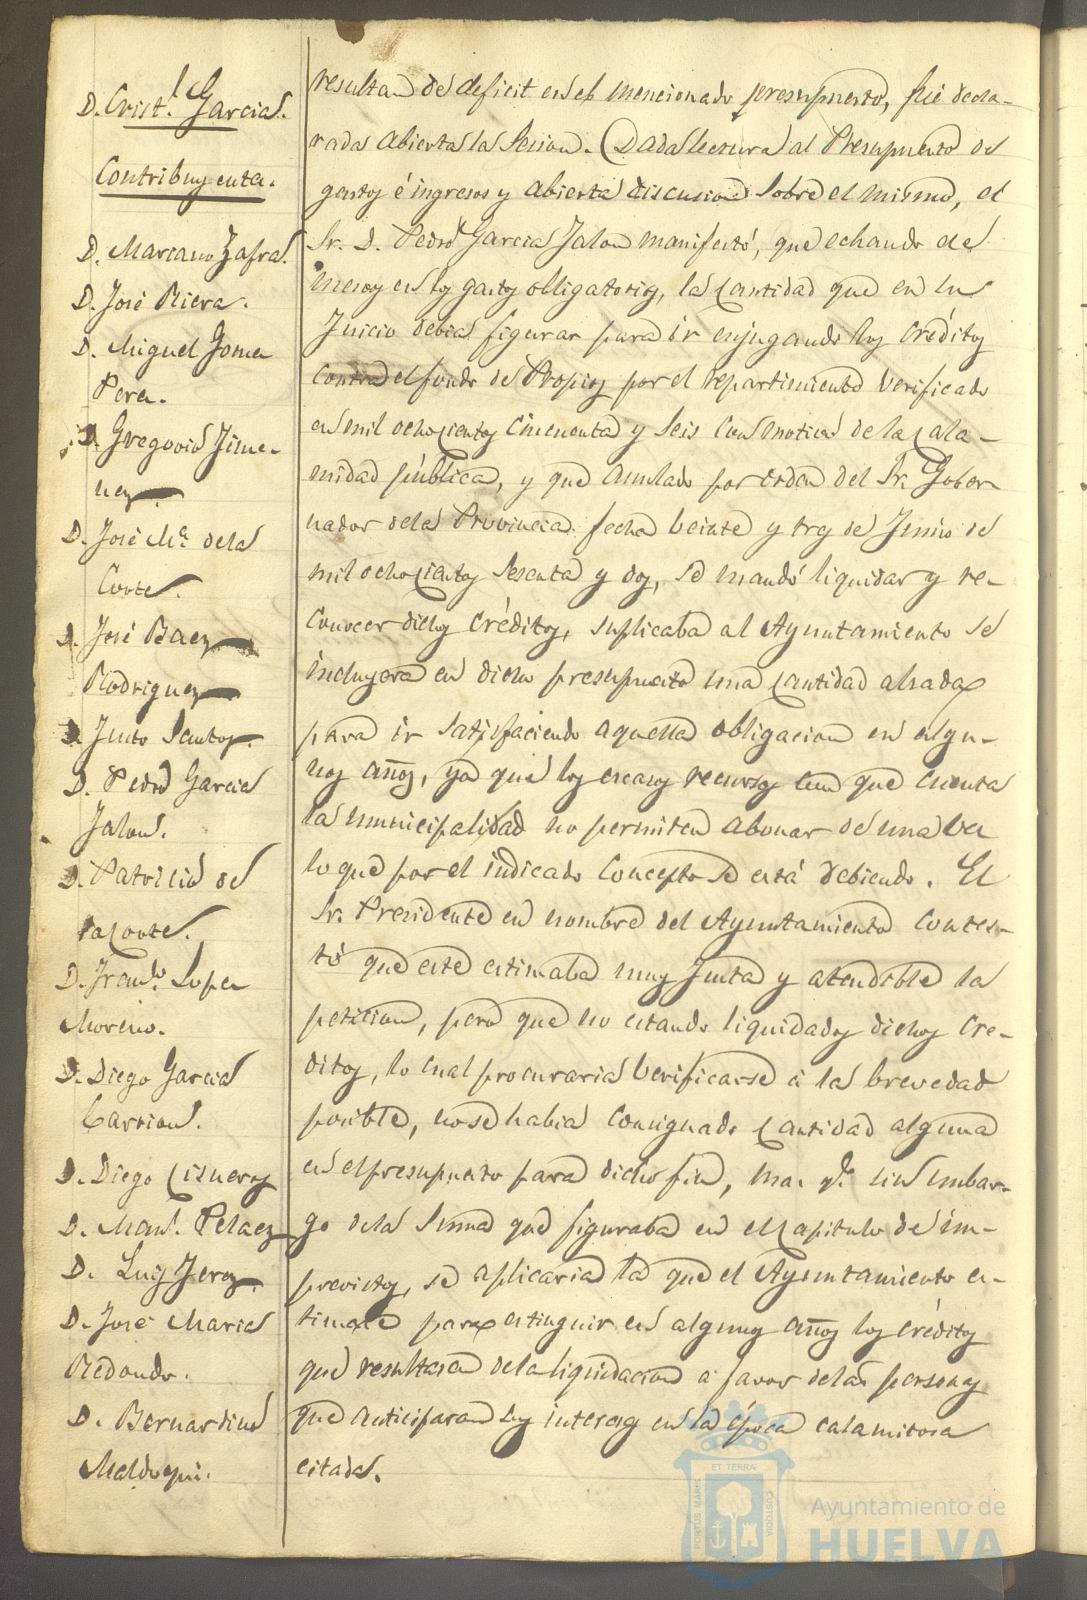 D. Crist.l Garcia.
Contribuyentes.
D. Mariano Zafra.
D. José Riera.
D. Miguel Gomez
Perez.
D. Gregorio Jime-
nez
D. José M.a de la
Corte.
D. José Baez
Rodriguez
D. Justo Santos.
D. Pedro Garcia
Jalon.
D. Patricio de
la Corte.
D. Fran.co Lopez
Moreno.
D. Diego Garcia
Carrion.
D. Diego Cisneros
D. Man.l Pelaez
D. Luis Jerez.
D. José Maria
Redondo.
D. Bernardino
resultan de deficit en el mencionado presupuesto, fué decla-
rada abierta la Sesion. Dada lectura al Presupuesto de
gastos é ingresos y abierta discusion sobre el mismo, el
Sr. D. Pedro Garcia Jalon manifestó, que echando de
menos en los gastos obligatorios, la cantidad que en su
Juicio debia figurar para ir enjugando los créditos
contra el fondo de Propios por el repartimiento verificado
en mil ochocientos cincuenta y seis con motivo de la cala-
midad pública, y que anulado por orden del Sr. Gober-
nador de la Provincia fecha veinte y tres de Junio de
mil ochocientos sesenta y dos, se mandó liquidar y re-
conocer dichos créditos, suplicaba al Ayuntamiento se
incluyera en dicho presupuesto una cantidad alzada
para ir satisfaciendo aquella obligacion en algu-
nos años, ya que los escasos recursos con que cuenta
la municipalidad no permiten abonar de una vez
lo que por el indicado concepto se está debiendo. El
Sr. Presidente en nombre del Ayuntamiento contes-
tó que este estimaba muy justa y atendible la
peticion, pero que no estando liquidados dichos cre-
ditos, lo cual procuraria verificarse á la brevedad
posible, no se habia consignado cantidad alguna
en el presupuesto para dicho fin, mas q.e sin embar-
go de la suma que figuraba en el capitulo de im-
previstos, se aplicaria la que el Ayuntamiento es-
timase para estinguir en algunos años los créditos
que resultasen de la liquidacion á favor de las personas
que anticiparon sus intereses en la época calamitosa
citada.
PORTUS MARIS
ET TERRAE
CUSTODIA
Ayuntamiento de
HUELVA